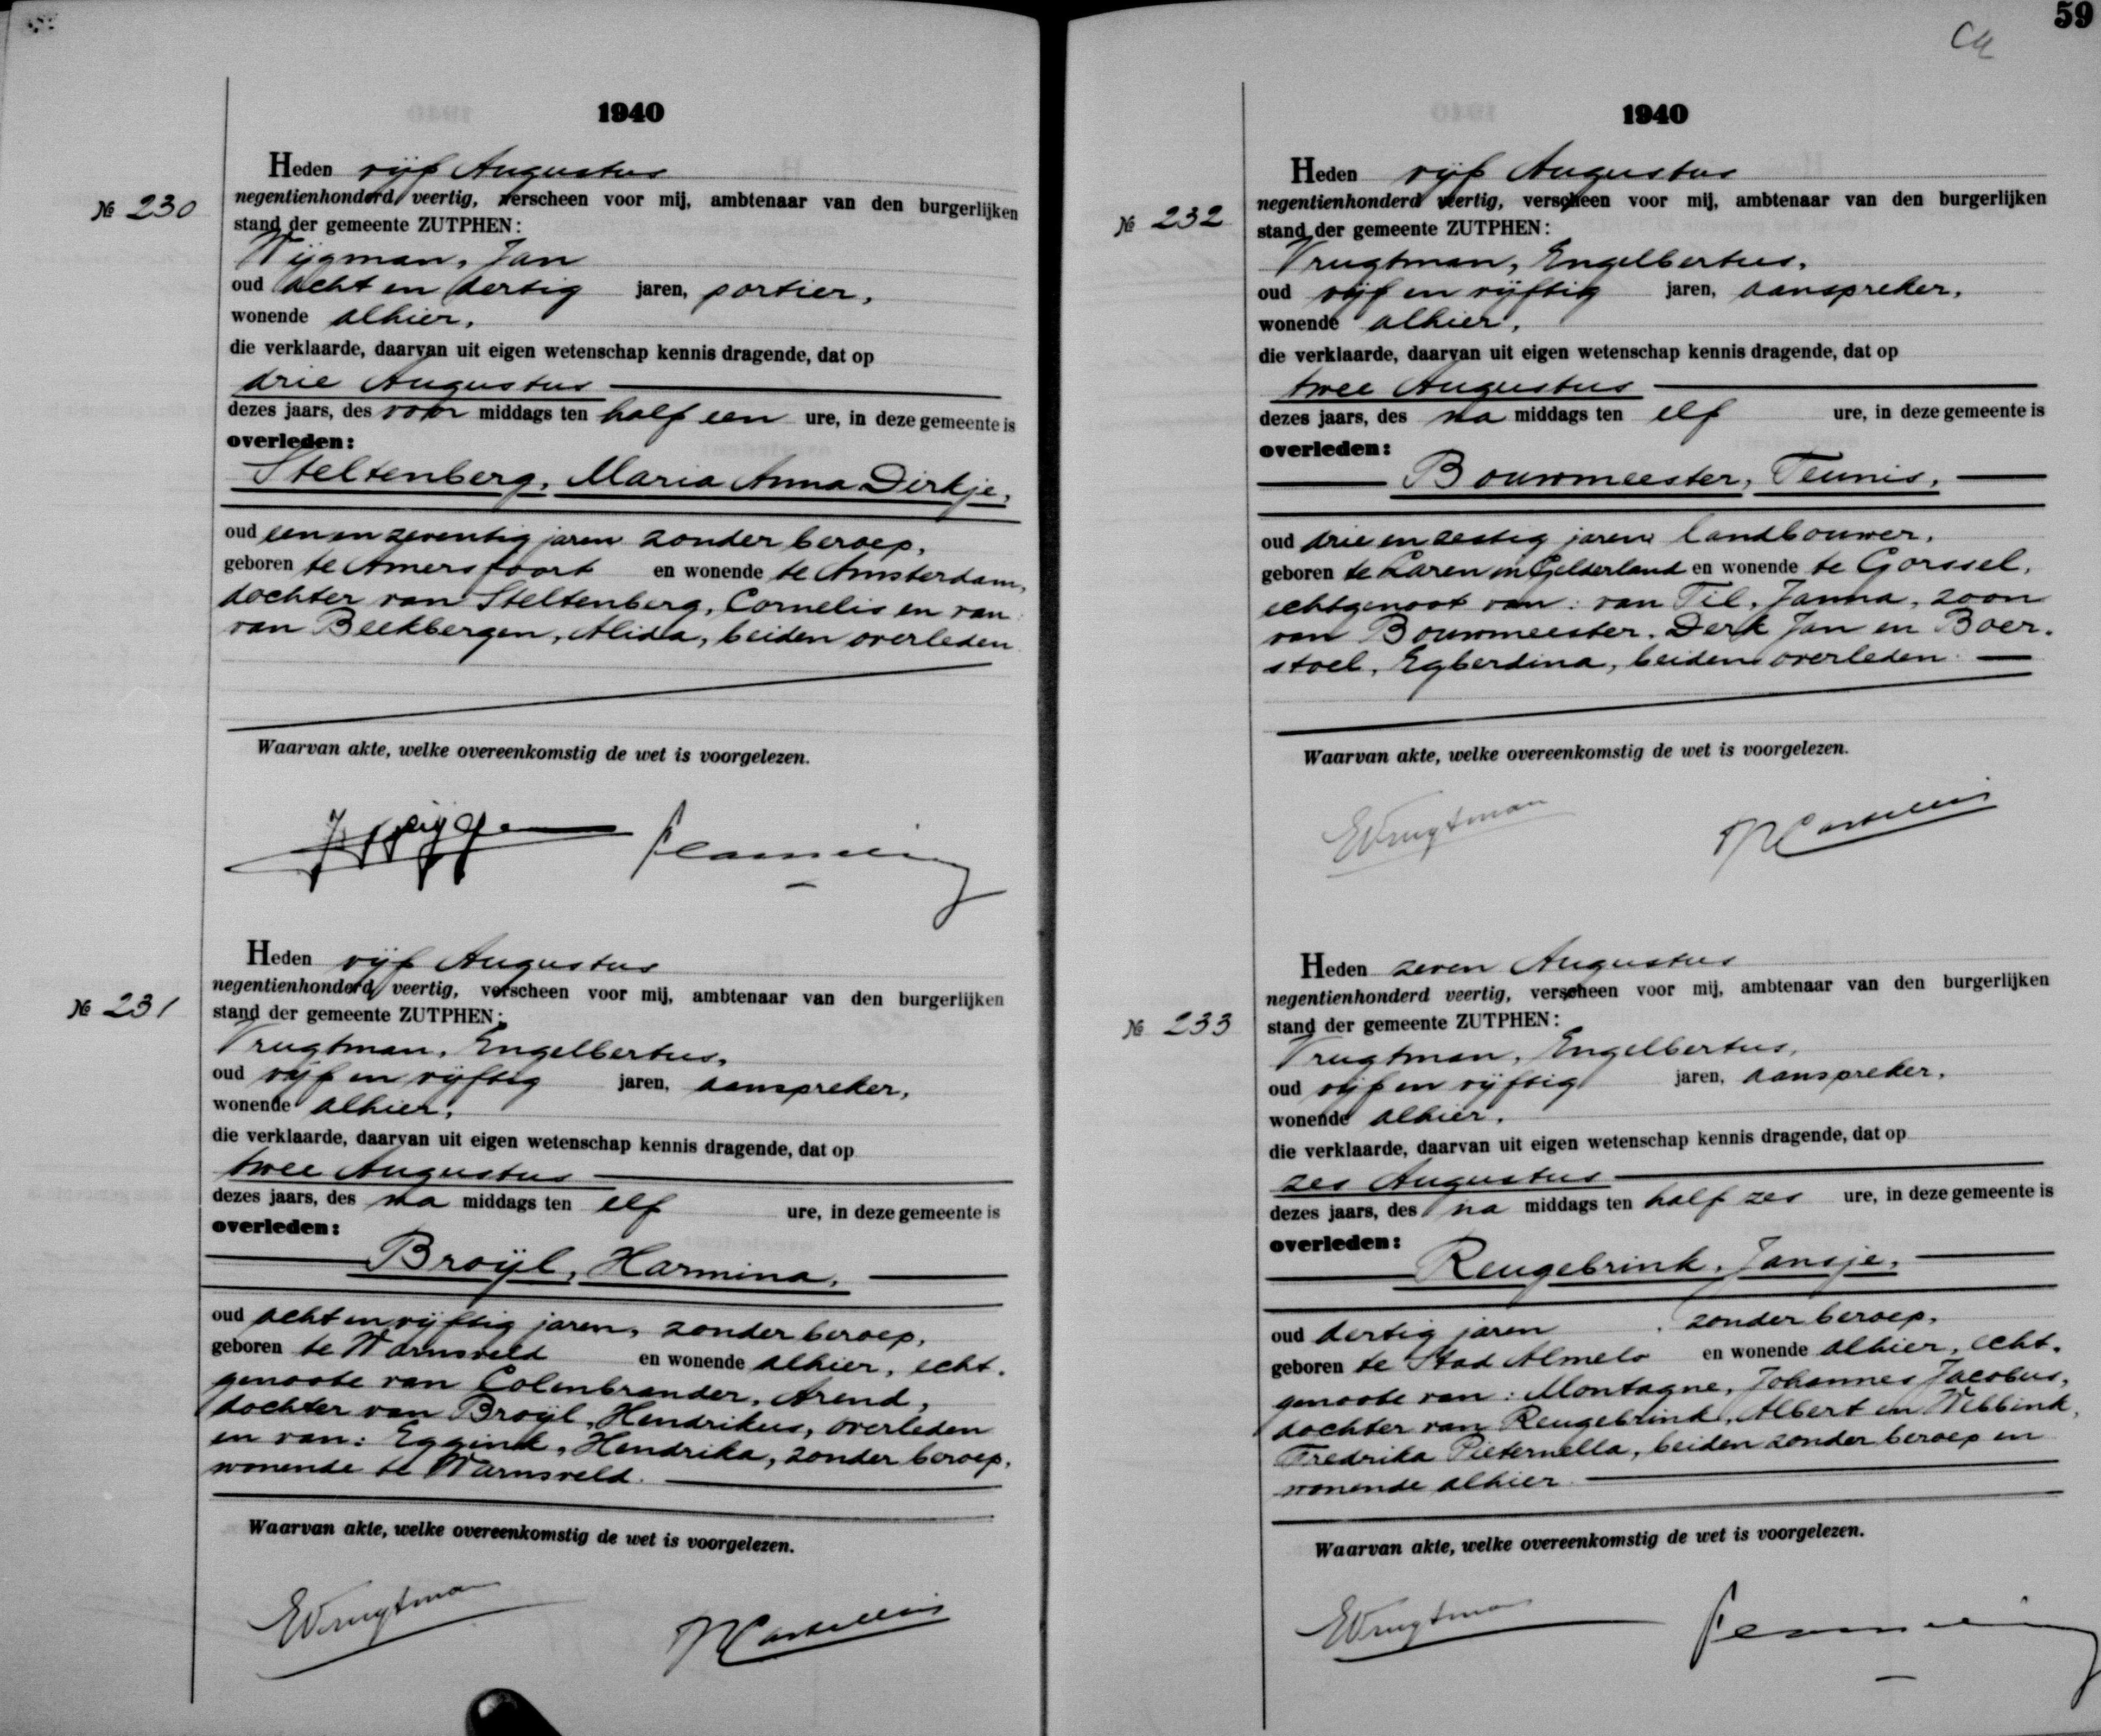 1940
Heden vijf Augustus
№ 230
negentienhonderd veertig, verscheen voor mij, ambtenaar van den burgerlijken
stand der gemeente ZUTPHEN:
Wijgman, Jan
oud acht en dertig jaren, portier,
wonende alhier,
die verklaarde, daarvan uit eigen wetenschap kennis dragende, dat op
drie Augustus
dezes jaars, des voor middags ten half een ure, in deze gemeente is
overleden:
Steltenberg, Maria Anna Dirkje,
oud een en zeventig jaren zonder beroep,
geboren te Amersfoort en wonende te Amsterdam,
dochter van Steltenberg, Cornelis en van:
van Beekbergen, Alida, beiden overleden
Waarvan akte, welke overeenkomstig de wet is voorgelezen.
Heden vijf Augustus
№ 231
negentienhonderd veertig, verscheen voor mij, ambtenaar van den burgerlijken
stand der gemeente ZUTPHEN:
Vrugtman, Engelbertus,
oud vijf en vijftig jaren, aanspreker,
wonende alhier,
die verklaarde, daarvan uit eigen wetenschap kennis dragende, dat op
twee Augustus
dezes jaars, des na middags ten elf ure, in deze gemeente is
overleden:
Broijl, Harmina,
oud acht en vijftig jaren, zonder beroep,
geboren te Warnsveld en wonende alhier, echt-
genoote van Colenbrander, Arend,
dochter van Broijl, Hendrikus, overleden
en van: Eggink, Hendrika, zonder beroep,
wonende te Warnsveld.
Waarvan akte, welke overeenkomstig de wet is voorgelezen.
EVrugtman
59
1940
Heden vijf Augustus
№ 232
negentienhonderd veertig, verscheen voor mij, ambtenaar van den burgerlijken
stand der gemeente ZUTPHEN:
Vrugtman, Engelbertus,
oud vijf en vijftig jaren, aanspreker,
wonende alhier,
die verklaarde, daarvan uit eigen wetenschap kennis dragende, dat op
twee Augustus
dezes jaars, des na middags ten elf ure, in deze gemeente is
overleden:
Bouwmeester, Teunis,
oud drie en zestig jaren landbouwer,
geboren te Laren in Gelderland en wonende te Gorssel,
echtgenoot van: van Til, Janna, zoon
van Bouwmeester, Derk Jan en Boer-
stoel, Egberdina, beiden overleden.
Waarvan akte, welke overeenkomstig de wet is voorgelezen.
EVrugtman
Heden zeven Augustus
№ 233
negentienhonderd veertig, verscheen voor mij, ambtenaar van den burgerlijken
stand der gemeente ZUTPHEN:
Vrugtman, Engelbertus,
oud vijf en vijftig jaren, aanspreker,
wonende alhier,
die verklaarde, daarvan uit eigen wetenschap kennis dragende, dat op
zes Augustus
dezes jaars, des na middags ten half zes ure, in deze gemeente is
overleden:
Reugebrink, Jansje,
oud dertig jaren, zonder beroep,
geboren te Stad Almelo en wonende alhier, echt-
genoote van: Montagne, Johannes Jacobus,
dochter van Reugebrink, Albert en Webbink,
Fredrika Pieternella, beiden zonder beroep en
wonende alhier
Waarvan akte, welke overeenkomstig de wet is voorgelezen.
EVrugtman